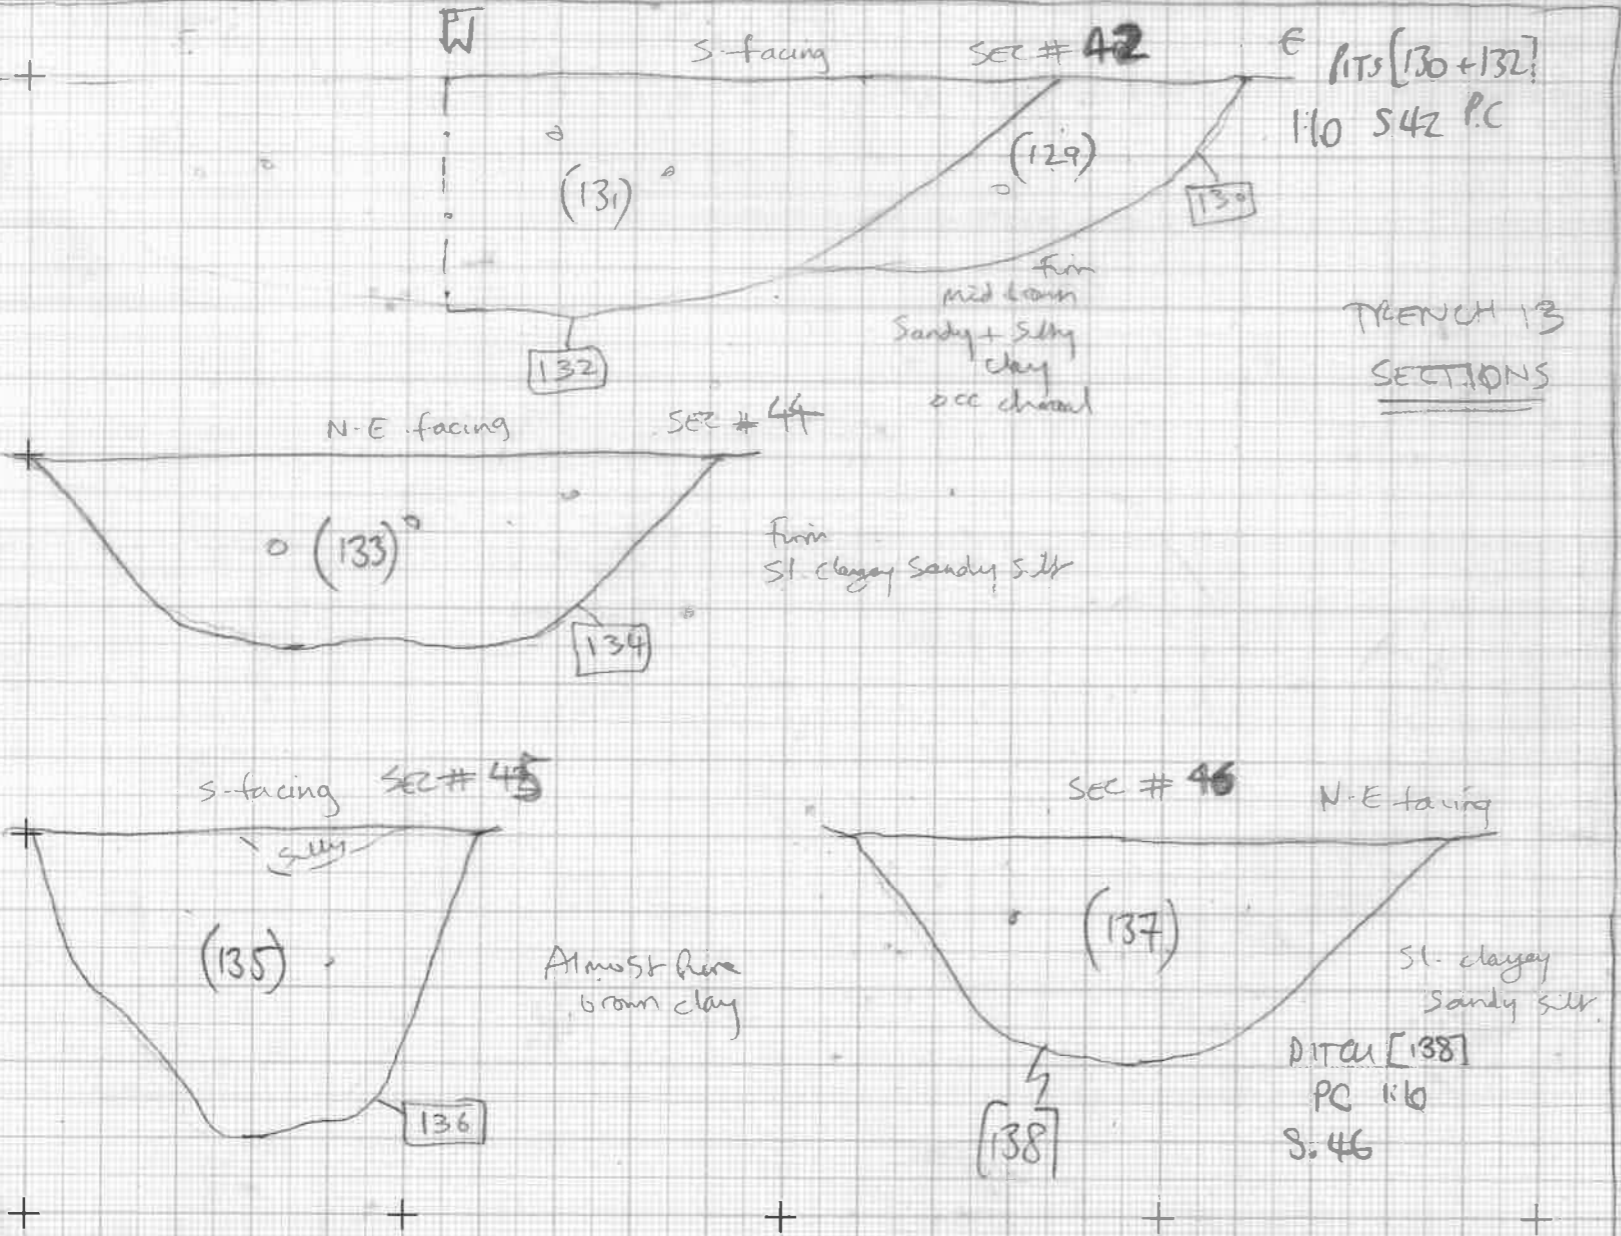 W S-facing SEC # 42 E
PITS [130 + 132]
1:10 S42 P.C
(129)
(131)
130
132
Firm
mid brown
Sandy + Silty
clay
occ charcoal
TRENCH 13
SECTIONS
N-E facing SEC # 44
(133)
134
Firm
Sl. clayey Sandy silt
S-facing SEC # 45
silty
(135)
136
Almost Pure
brown clay
SEC # 46 N-E facing
(137)
[138]
Sl. clayey
Sandy silt.
DITCH [138]
PC 1:10
S. 46